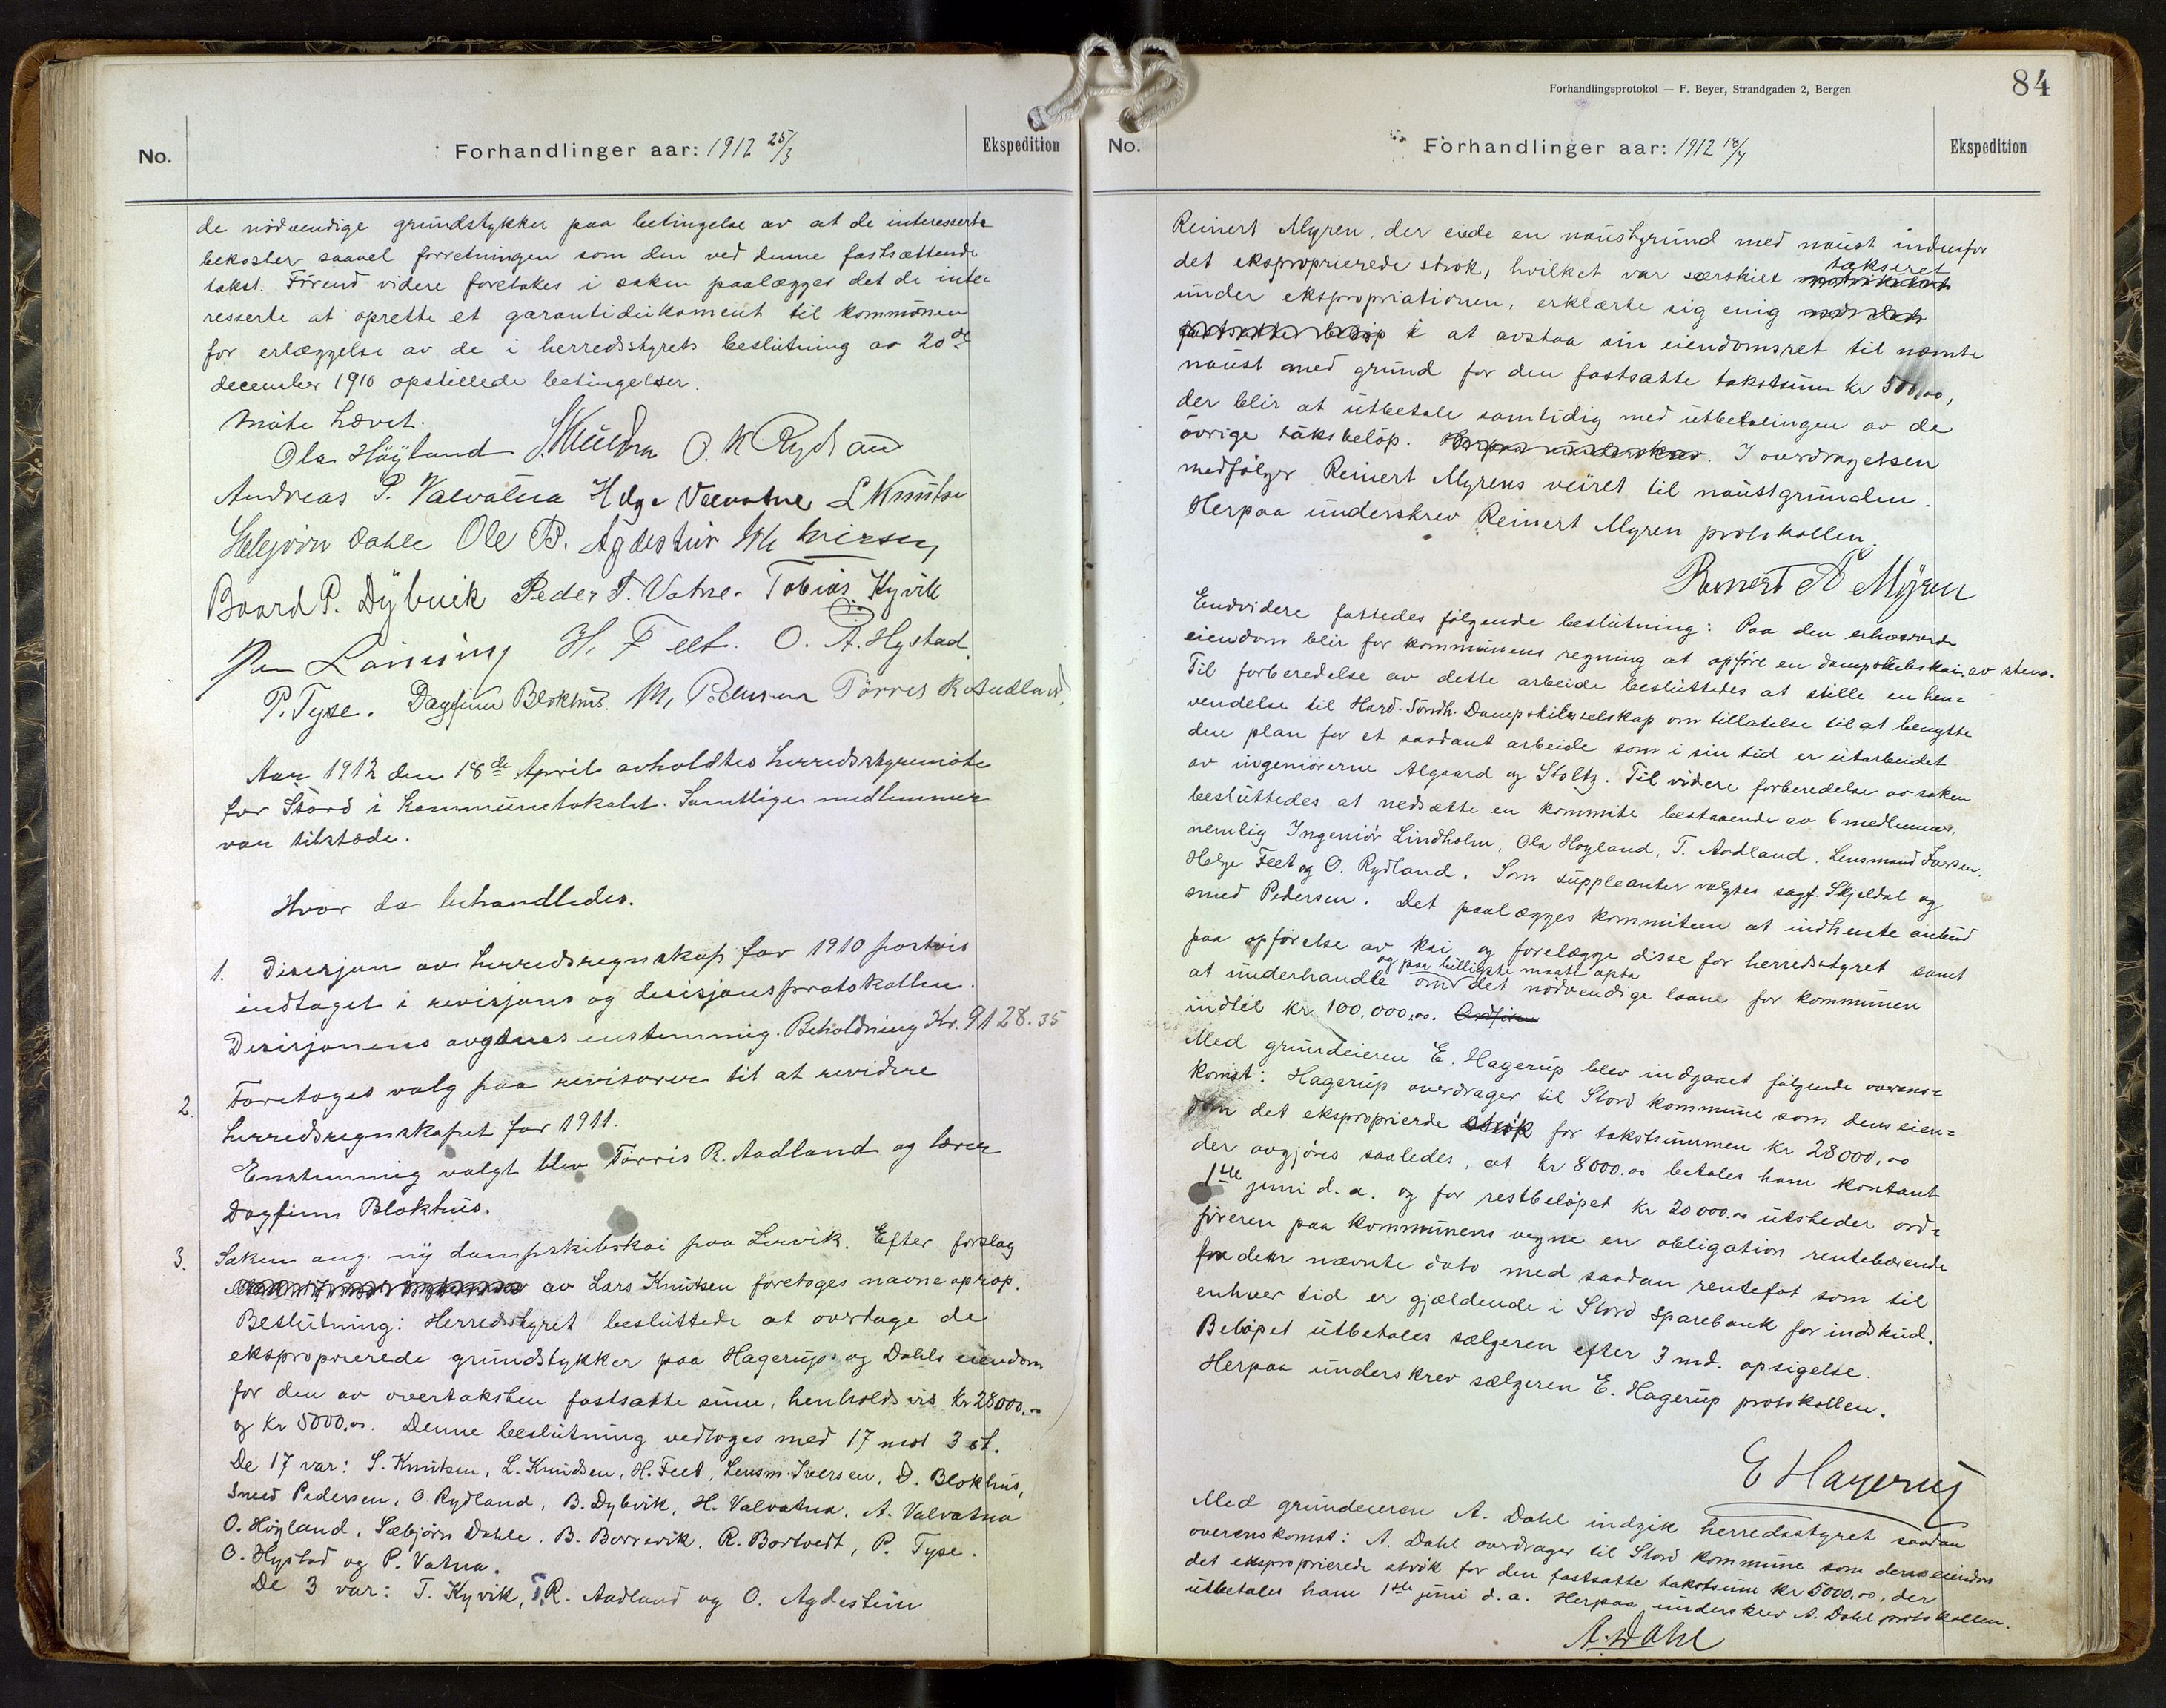 No.
Forhandlinger aar: 1912 25/3
Ekspedition
de nödvendige grundstykker paa betingelse av at de interesserte
bekoster saavel forretningen som den ved denne fastsættende
takst. Förend videre foretakes i saken paalægges det de inte-
resserte at oprette et garantidokument til kommunen
for erlæggelse av de i herredsstyrets beslutning av 20de
december 1910 opstillede betingelser.
Möte hævet.
Ola Höyland O. K Rydland
Andreas P. Valvatna Helge Valvatne L Knutsen
Sæbjörn Dahle Ole B. Agdestein
Baard P. Dybvik Peder T. Vatne. Tobias Kyvik
H. Feet. O. A. Hystad
P. Tyse. Dagfinn Blokhus. M. Pedersen Törres R. Aadland
Aar 1912 den 18de April avholdtes herredsstyremöte
for Stord i Kommunelokalet. Samtlige medlemmer
var tilstæde.
Hvor da behandledes.
1. Decisjon av herredsregnskap for 1910 portvis
indtaget i revisjons og decisjonsprotokollen.
Decisjonens avgtnes enstemmig. Beholdning Kr. 9128.35
2. Foretoges valg paa revisorer til at revidere
herredsregnskapet for 1911.
Enstemmig valgt blev Törris R. Aadland og lærer
Dagfinn Blokhus.
3. Saken ang. ny dampskibskai paa Lervik. Efter forslag
av Lars Knutsen foretoges navneoprop.
Beslutning: Herredsstyret besluttede at overtage de
eksproprierede grundstykker paa Hagerups og Dahls eiendom
for den av overtaksten fastsatte sum, henholdsvis Kr 28000.00
og Kr 5000.00. Denne beslutning vedtoges med 17 mot 3 st.
De 17 var: S. Knutsen, L. Knudsen, H. Feet, Lensm. Iversen, D. Blokhus,
Smed Pedersen, O Rydland, B. Dybvik, H. Valvatna, A. Valvatna
O. Höyland, Sæbjörn Dahle, B. Borrevik, R. Bortvedt, P. Tyse.
O. Hystad og P. Vatna.
De 3 var: T. Kyvik, T. R. Aadland og O. Agdestein
Forhandlingsprotokol — F. Beyer, Strandgaden 2, Bergen
84
No.
Forhandlinger aar: 1912 18/4
Ekspedition
Reinert Myren, der eiede en naustgrund med naust indenfor
det eksproprierede strök, hvilket var særskilt matrikulert takseret
under ekspropriationen, erklærte sig enig med den
fastsatte belöp i at avstaa sin eiendomsret til nævnte
naust med grund for den fastsatte takstsum Kr 500.00,
der blir at utbetale samtidig med utbetalingen av de
övrige taksbelöp. Herpaa underskrev. I overdragelsen
medfölger Reinert Myrens veiret til naustgrunden.
Herpaa underskrev Reinert Myren protokollen.
Reinert A Myren
Endvidere fattedes fölgende beslutning: Paa den erhvervede
eiendom blir for kommunens regning at opföre en dampskibskai av sten.
Til forberedelse av dette arbeide besluttedes at stille en hen=
vendelse til Hard. Söndh. Dampskibsselskap om tillatelse til at benytte
den plan for et saadant arbeide som i sin tid er utarbeidet
av ingeniörerne Algaard og Stoltz. Til videre forberedelse av saken
besluttedes at nedsætte en kommite bestaaende av 6 medlemmer,
nemlig Ingeniör Lindholm, Ola Höyland, T. Aadland, Lensmand Iversen.
Helge Feet og O. Rydland. Som suppleanter valgtes sagf. Skjeldal og
smed Pedersen. Det paalægges kommiteen at indhente anbud
paa opförelse av kai og forelægge disse for herredsstyret samt
og paa billigste maate opta
at underhandle om det nödvendige laane for kommunen
indtil Kr 100.000.00.
Med grundeieren E. Hagerup blev indgaaet fölgende overens=
komst: Hagerup overdrager til Stord kommune som dens eien=
dom det eksproprierede strök for takstsummen Kr 28000.00
der avgjöres saaledes, at Kr 8000.00 betales ham kontant
1ste juni d. a. og for restbelöpet Kr 20000.00 utsteder ord=
föreren paa kommunens vegne en obligation rentebærende
fra den nævnte dato med saadan rentefot som til
enhver tid er gjældende i Stord Sparebank for indskud.
Belöpet utbetales sælgeren efter 3 md. opsigelse.
Herpaa underskrev sælgeren E. Hagerup protokollen.
E Hagerup
Med grundeieren A. Dahl indgik herredsstyret saadan
overenskomst: A. Dahl overdrager til Stord Kommune som deres eiendom
det eksproprierede strök for den fastsatte takstsum Kr 5000.00, der
utbetales ham 1ste juni d. a. Herpaa underskrev A. Dahl protokollen.
A. Dahl